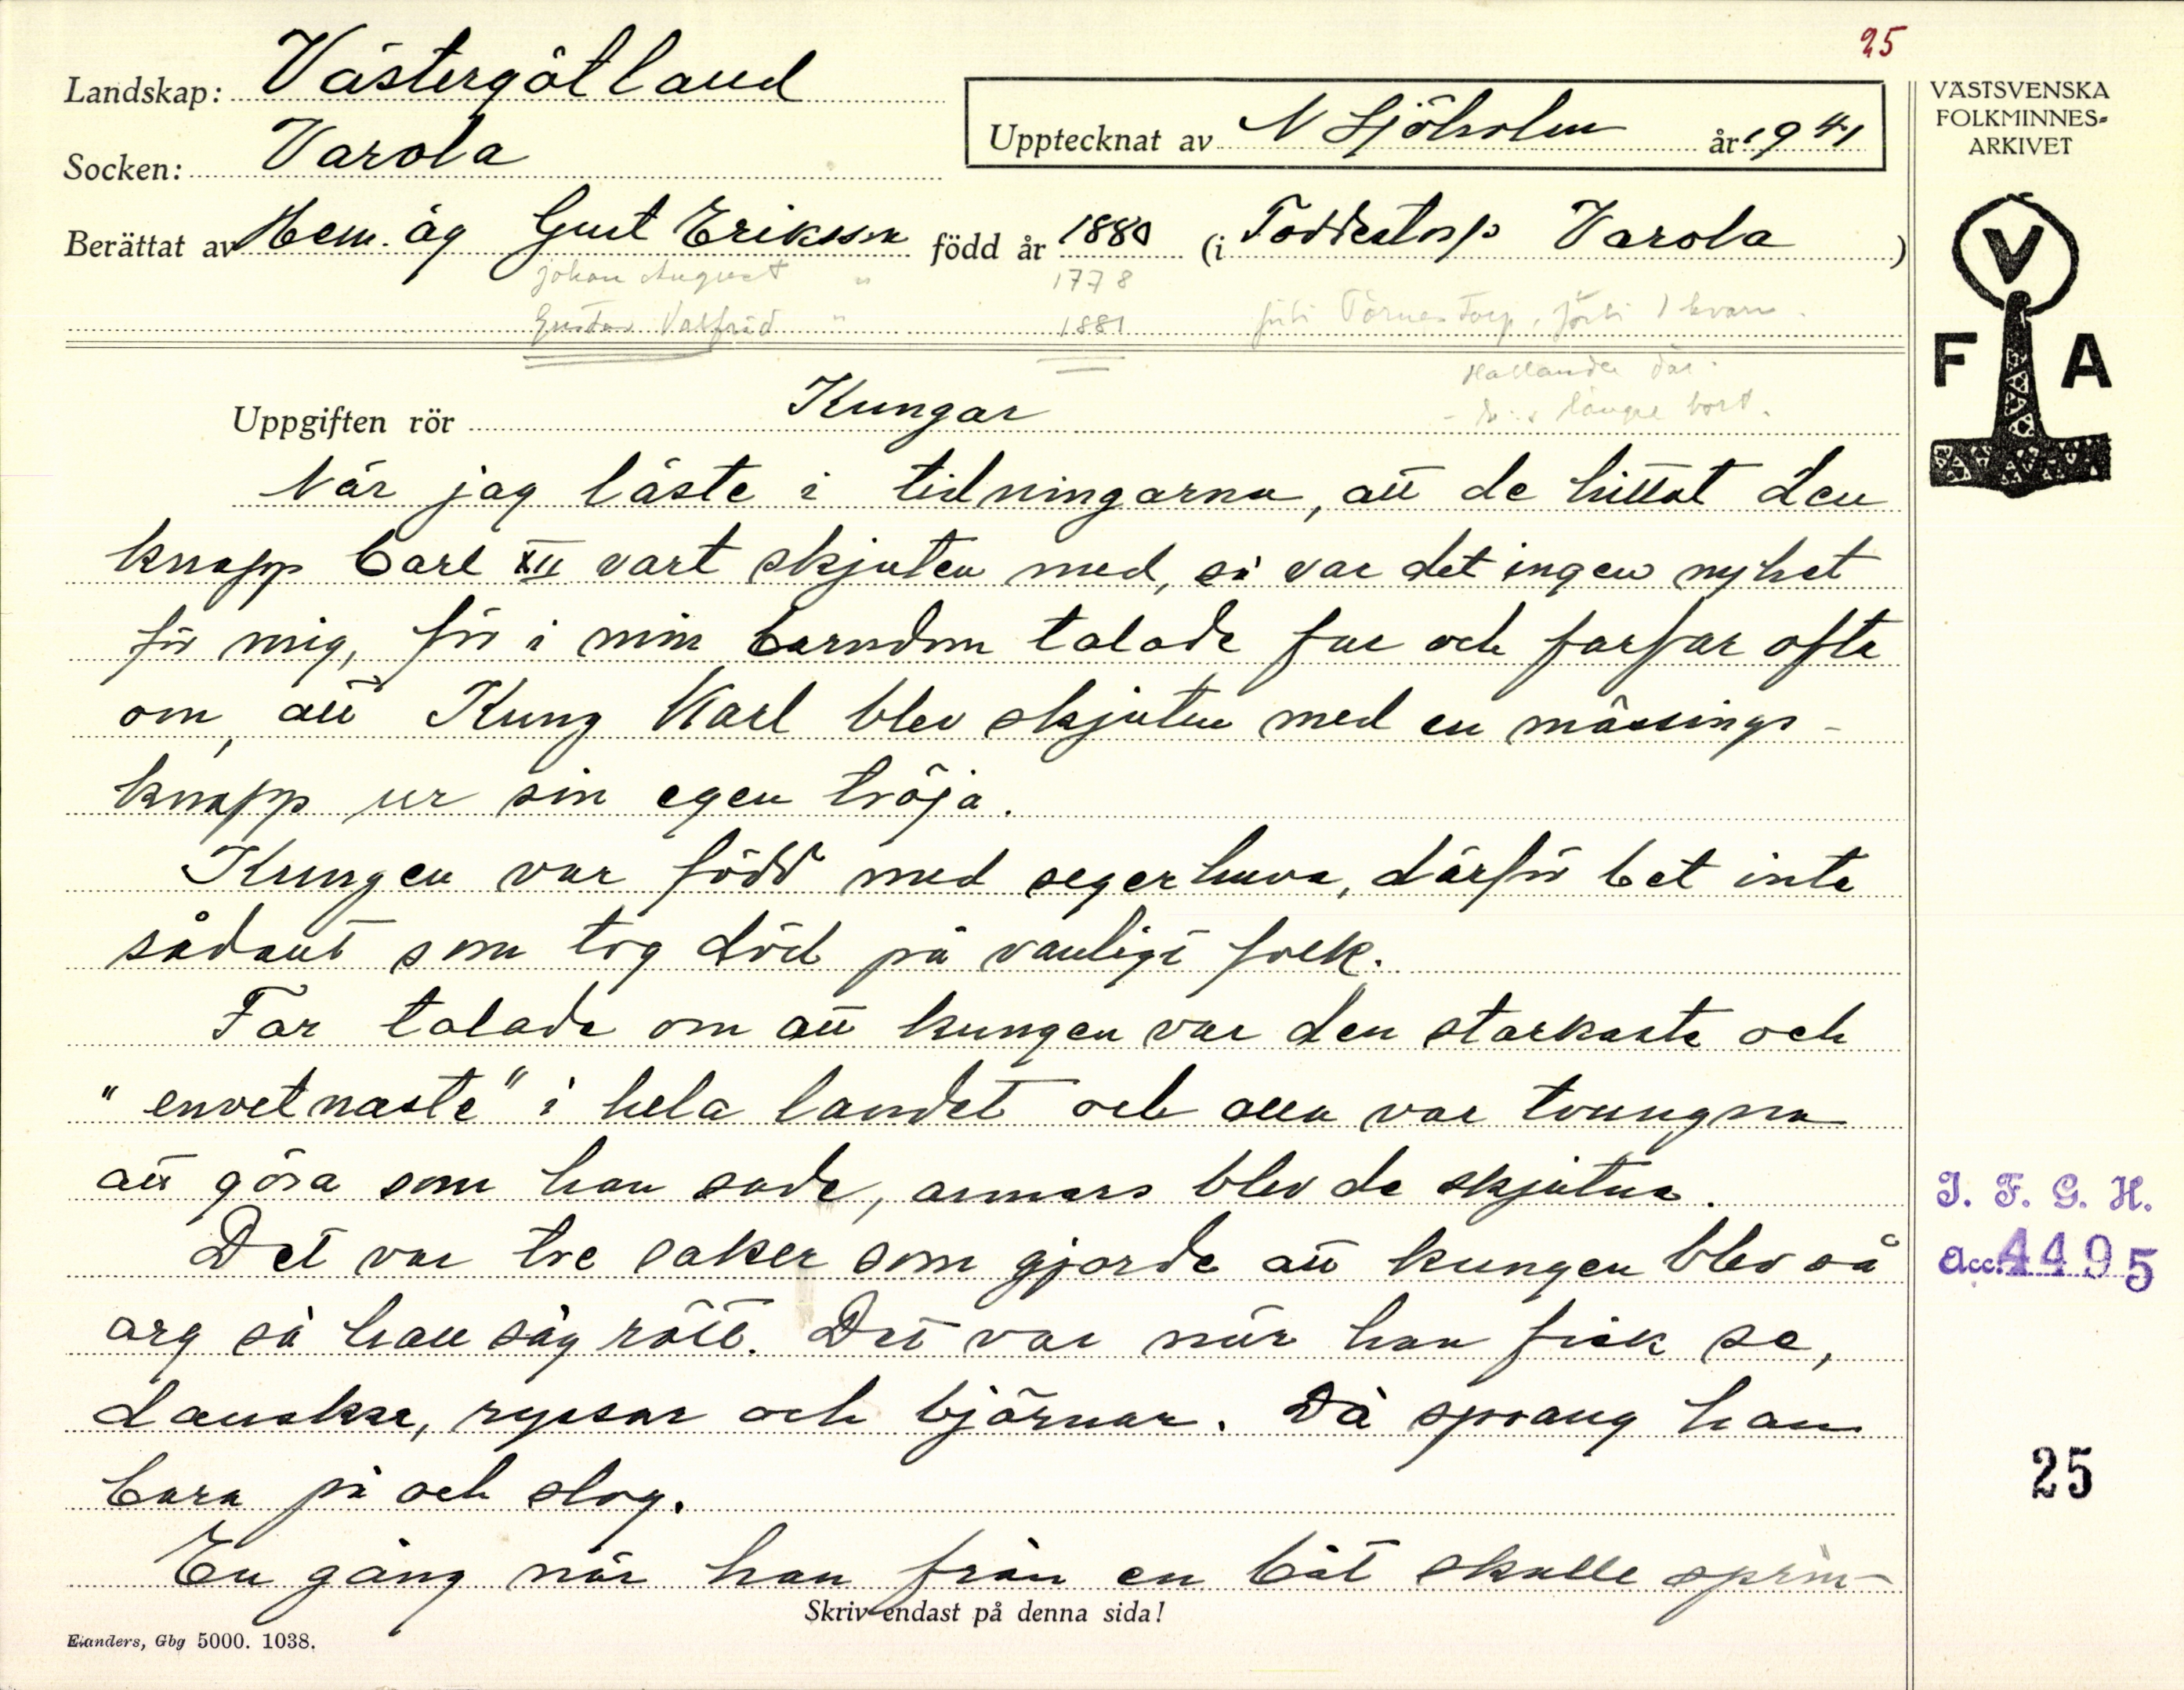 25
Landskap: Västergötland
Socken: Varola
Upptecknat av N Sjöholm år 1941
Berättat av Hem.äg Gust Eriksson född år 1880 (i Toddestorp Varola)
Johan August " 1778
Gustav Valfrid " 1881
Uppgiften rör Kungar
längre bort.
När jag läste i tidningarna, att de hittat den
knapp Carl XII vart skjuten med, så var det ingen nyhet
för mig, för i min barndom talade far och farfar ofta
om, att Kung Karl blev skjuten med en mässings-
knapp ur sin egen tröja.
Kungen var född med segerhuva, därför bet inte
sådant som tog död på vanligt folk.
Far talade om att kungen var den starkaste och
"envetnaste" i hela landet och alla var tvungna
att göra som han sade, annars blev de skjutna.
Det var tre saker som gjorde att kungen blev så
arg så han såg rött. Det var när han fick se,
danskar, ryssar och björnar. Då sprang han
bara på och slog.
En gång när han från en båt skulle sprin-
Skriv endast på denna sida!
Elanders, Gbg 5000. 1038.
VÄSTSVENSKA
FOLKMINNES-
ARKIVET
V
F A
I. F. G. H.
Acc. 4495
25